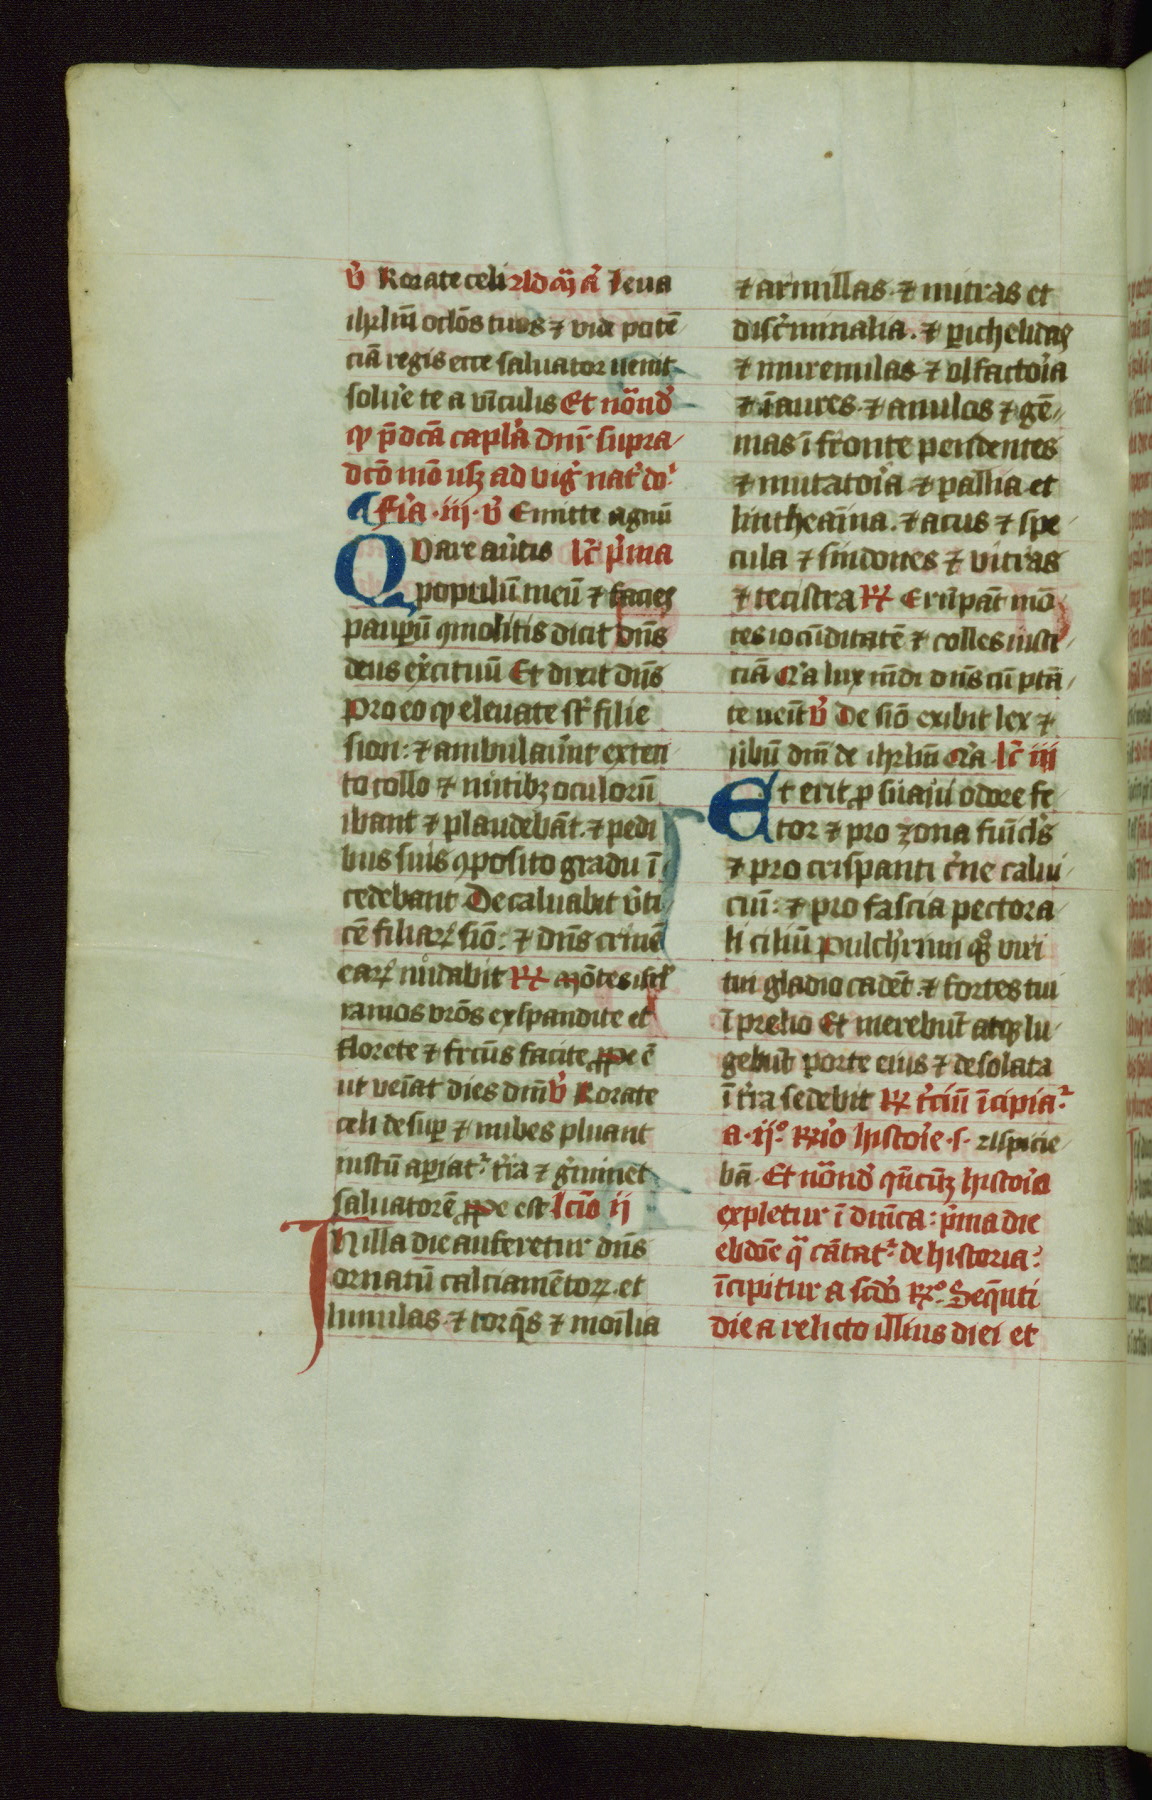 v̉ Rorate celi Ad m̄ a᷒ Leua
ihrl̄m oc̄los tuos ⁊ vide potē
ciā regis ecce saluator uenit
soluẽ te a vīculis Et nōnd᷒
ꝙ p̄dc̄a capl̓a dn̄r supra
dcō mō usꝫ ad vig᷒ nat᷒ do᷒
¶ Fr̓a · iij · v̉ Emitte agnū
Quare atītis lc̄ p̓ma
populū meū ⁊ facies
paupū ꝯmolitis dicit dn̄s
deus ex̓cituū Et dixit dn̄s
Pro eo ꝙ eleuate st̄ filie
sion: ⁊ ambulauer̄t exten
to collo ⁊ nutibꝫ oculorū
ibant ⁊ plaudebāt. ⁊ pedi
bus suis ꝯposito gradu ī
cedebant Decaluabit v̓ti
cē filiaꝝ siō: ⁊ dn̄s crinē
eaꝝ nudabit ℟ Mōtes isrl̓
ramos vr̄os expandite et
florete ⁊ fruct̄s facite ꝓpe ē
ut veīat dies dn̄i v̉ Rorate
celi desuꝑ ⁊ nubes pluant
iustū apiat᷒ tr̓a ⁊ g̓minet
saluatorē ꝓpe est lc̄io ij
In illa die auferetur dn̄s
ornatū calciamētoꝝ · et
lunulas · ⁊ torq̄s ⁊ moīlia
⁊ armillas · ⁊ mitras et
disc̓minalia. ⁊ pichelidas
⁊ murenulas ⁊ olfactor̓a
⁊ īaures · ⁊ anulos ⁊ gē
mas ī fronte pendentes
⁊ mutator̓a ⁊ pallia et
lintheaīna. ⁊ acus ⁊ spe
cula ⁊ sindones ⁊ vittas
⁊ tecistra ℟ Erūpāt mō
tes iocūditatē ⁊ colles iusti
ciā Q̓a lux mūdi dn̄s cū ptā
te ueīt v̉ De siō exibit lex ⁊
v̓bū dn̄i de ihrl̄m Q̓a lc̄ iij
Et erit ꝓ suaui odore fe
tor ⁊ pro zona funicl̓s
⁊ pro crispanti c̓ne calui
ciū: ⁊ pro fascia pectora
li ciliū Pulch̓rimi qꝫ viri
tui gladio cadēt. ⁊ fortes tui
ī prelio Et merebūt atqꝫ lu
gebūt porte eius ⁊ desolata
ī tr̓a sedebit ℟ t̓ciū īcipia᷒
a · ij° ℟io histor̓e · s · Aspicie
bā · Et nōnd᷒ qn̄cūqꝫ histor̓a
expletur ī dn̄ica: p̓ma die
ebdōe q̄ cātat᷒ de historia᷒
īcipitur a scd̓o ℟° · Seq̄nti
die a relicto illius diei et